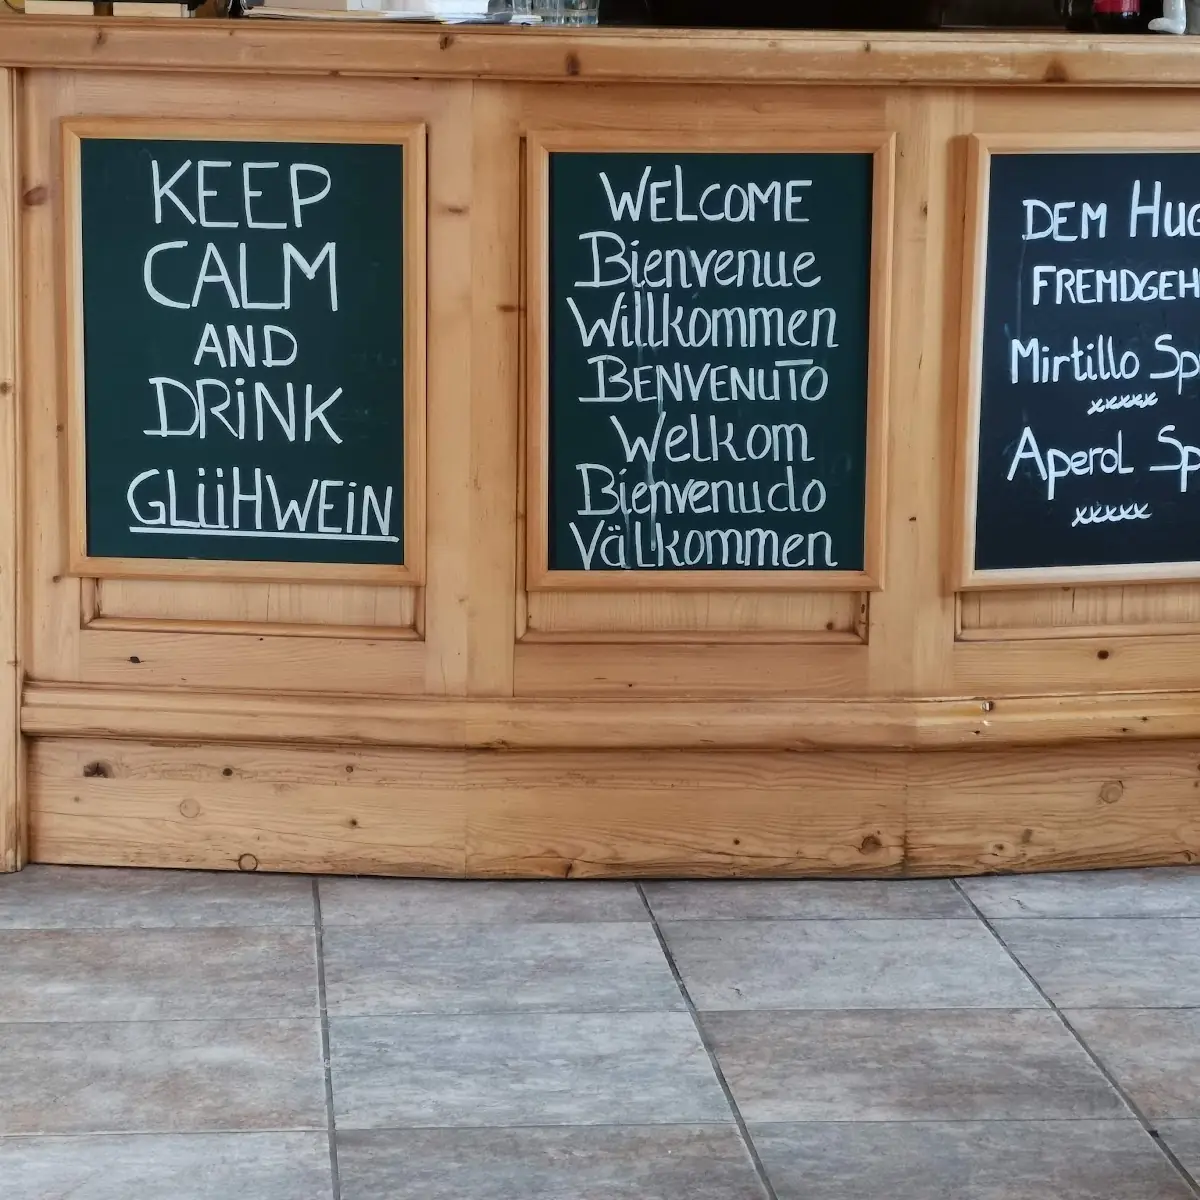 KEEP
CALM
AND
DRiNK
GLüHWEiN
WELCOME
Bienvenue
Willkommen
BENVENUTO
Welkom
Bienvenudo
Välkommen
DEM HUG
FREMDGEH
Mirtillo Sp
xxxxx
Aperol Sp
xxxxx